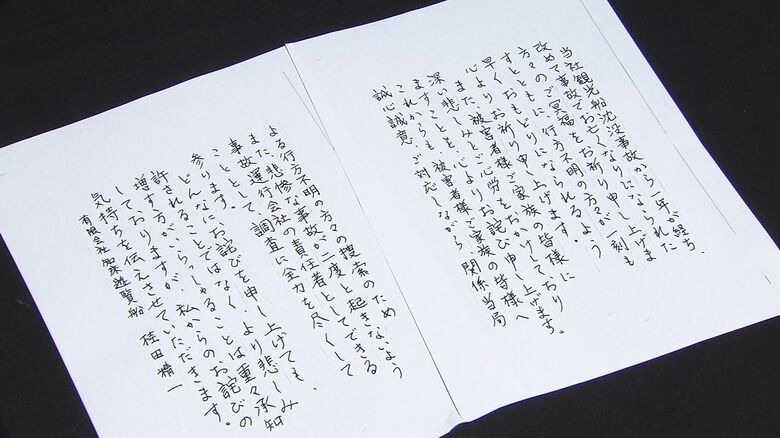 当社観光船沈没事故から一年が経ち、
改めて事故でお亡くなりになられた
方々のご冥福をお祈り申し上げま
すとともに、行方不明の方々が一刻も
早くおもどりになられるよう
心よりお祈り申し上げます。
また、被害者様ご家族の皆様に
深い悲しみとご心労をおかけしており
ますことを、心よりお詫び申し上げます。
これからも、被害者様ご家族の皆様へ
誠心誠意ご対応しながら、関係当局
よる行方不明の方々の捜索のため
また、悲惨な事故が二度と起きないよう
事故運行会社の責任者としてできる
こととして、調査に全力を尽くして
参ります。
どんなにお詫びを申し上げても、
許されることではなく、より悲しみ
増す方がいらっしゃることは重々承知
しておりますが、私からのお詫びの
気持ちを伝えさせていただきます。
有限会社知床遊覧船 桂田精一